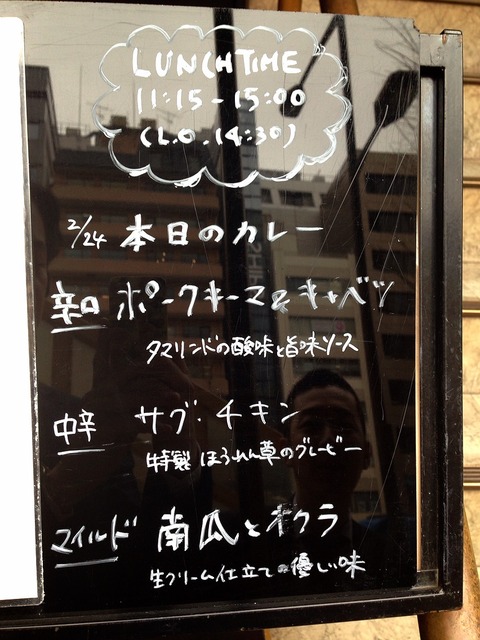 LUNCH TIME
11:15-15:00
(L.O.14:30)
2/24 本日のカレー
辛口 ポークキーマ&キャベツ
タマリンドの酸味と旨味ソース
中辛 サグ・チキン
特製 ほうれん草のグレービー
マイルド 南瓜とオクラ
生クリーム仕立ての優しい味